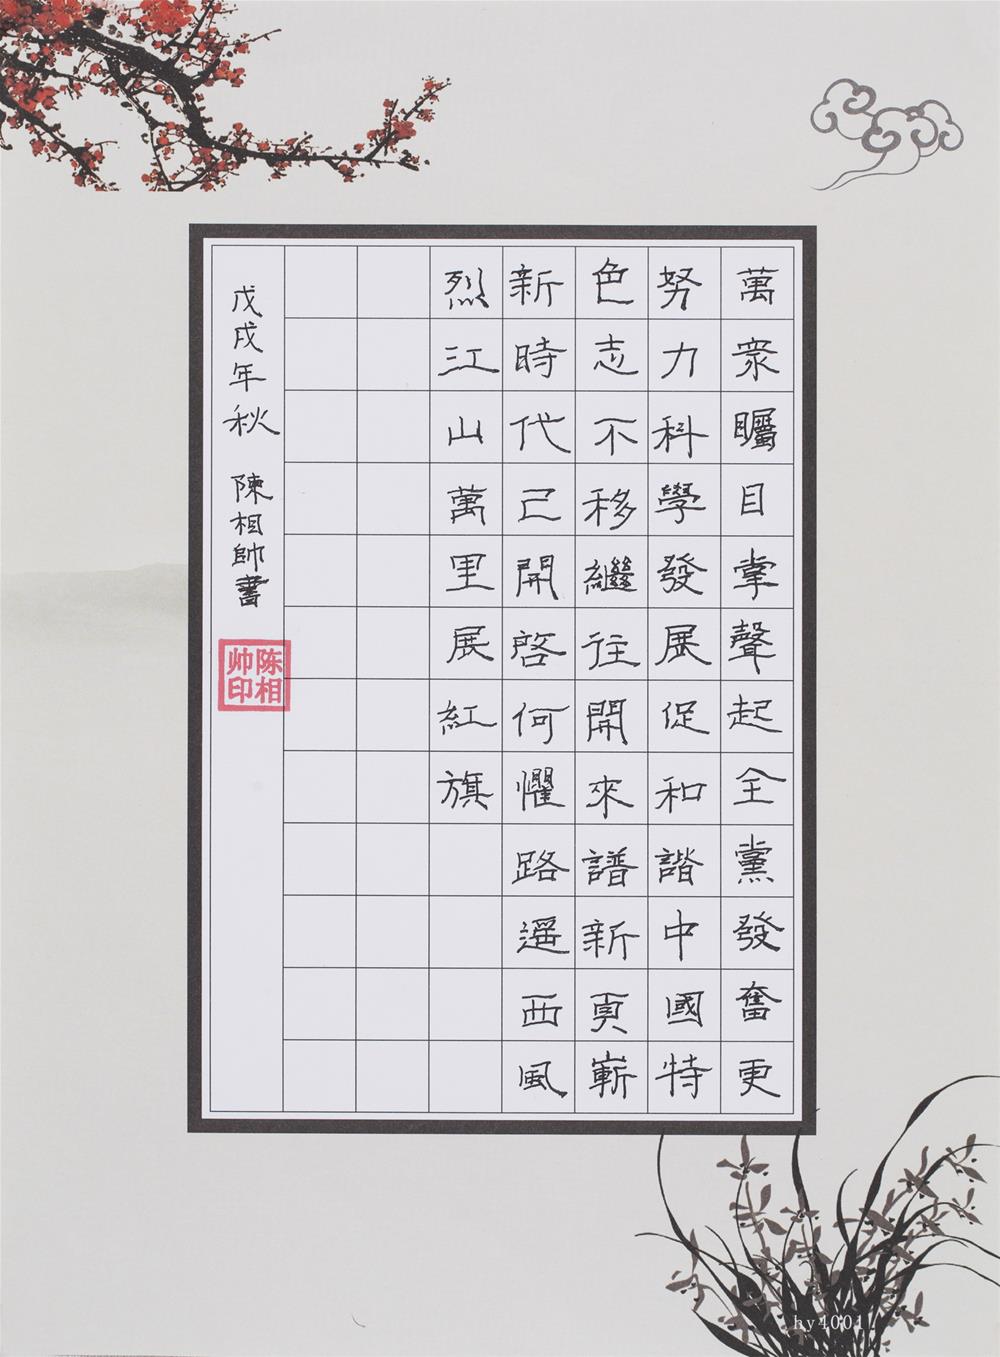 萬衆矚目掌聲起全黨發奮更
努力科學發展促和諧中國特
色志不移繼往開來譜新頁嶄
新時代已開啓何懼路遥西風
烈江山萬里展紅旗
戊戌年秋 陳相帥書
陈相帅印
hy4001